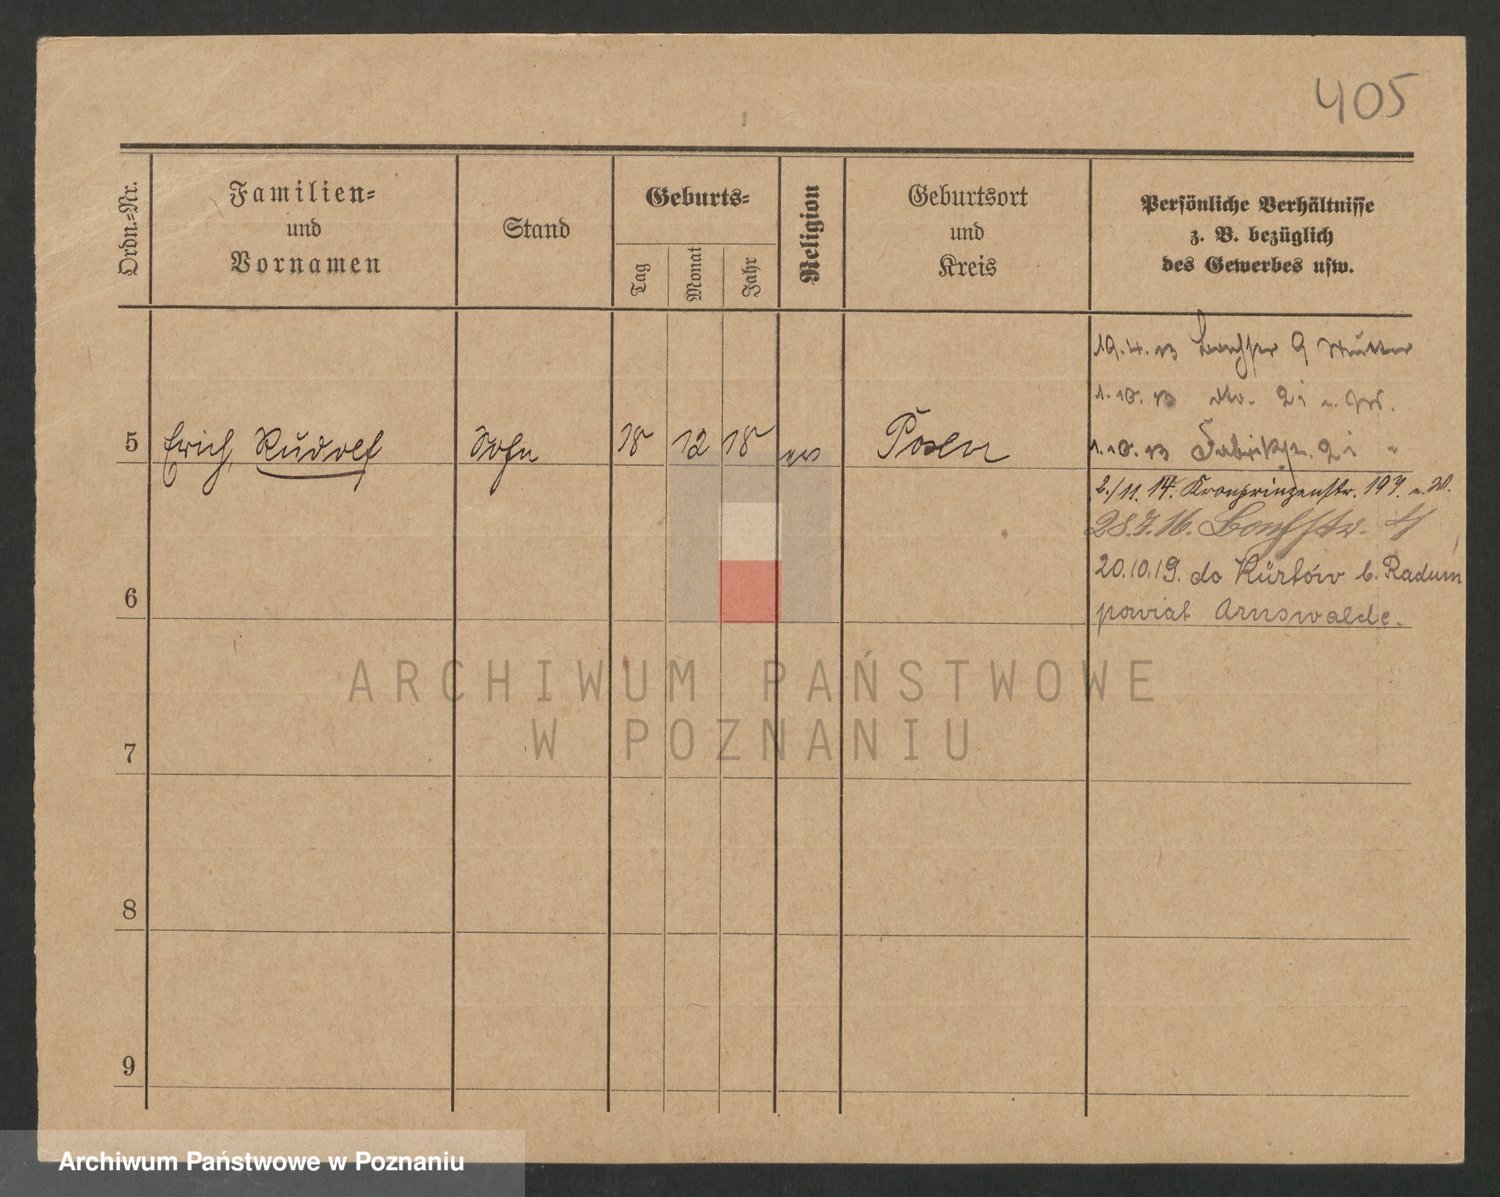 405
Ordn.=Nr.
Familien=
und
Vornamen
Stand
Geburts=
Tag
Monat
Jahr
Religion
Geburtsort
und
Kreis
Persönliche Verhältnisse
z. B. bezüglich
des Gewerbes usw.
19.4.13 9 Mutter
1.10.13 dto. 2i
5 Erich, Rudolf Sohn 18 12 18 ev Posen
1.10.13 Fabrikstr. 2i "
2./11. 14. Kronprinzenstr. 197.
28.7.16.
20.10.19. do Kürtów b. Radum
6
powiat Arnswalde.
ARCHIWUM PAŃSTWOWE
W POZNANIU
7
8
9
Archiwum Państwowe w Poznaniu